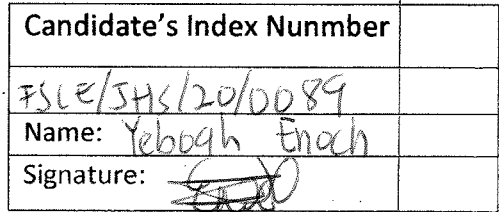 Candidate's Index Nunmber
FSCE/JHS/20/0089
Name: Yeboah Enoch
Signature: